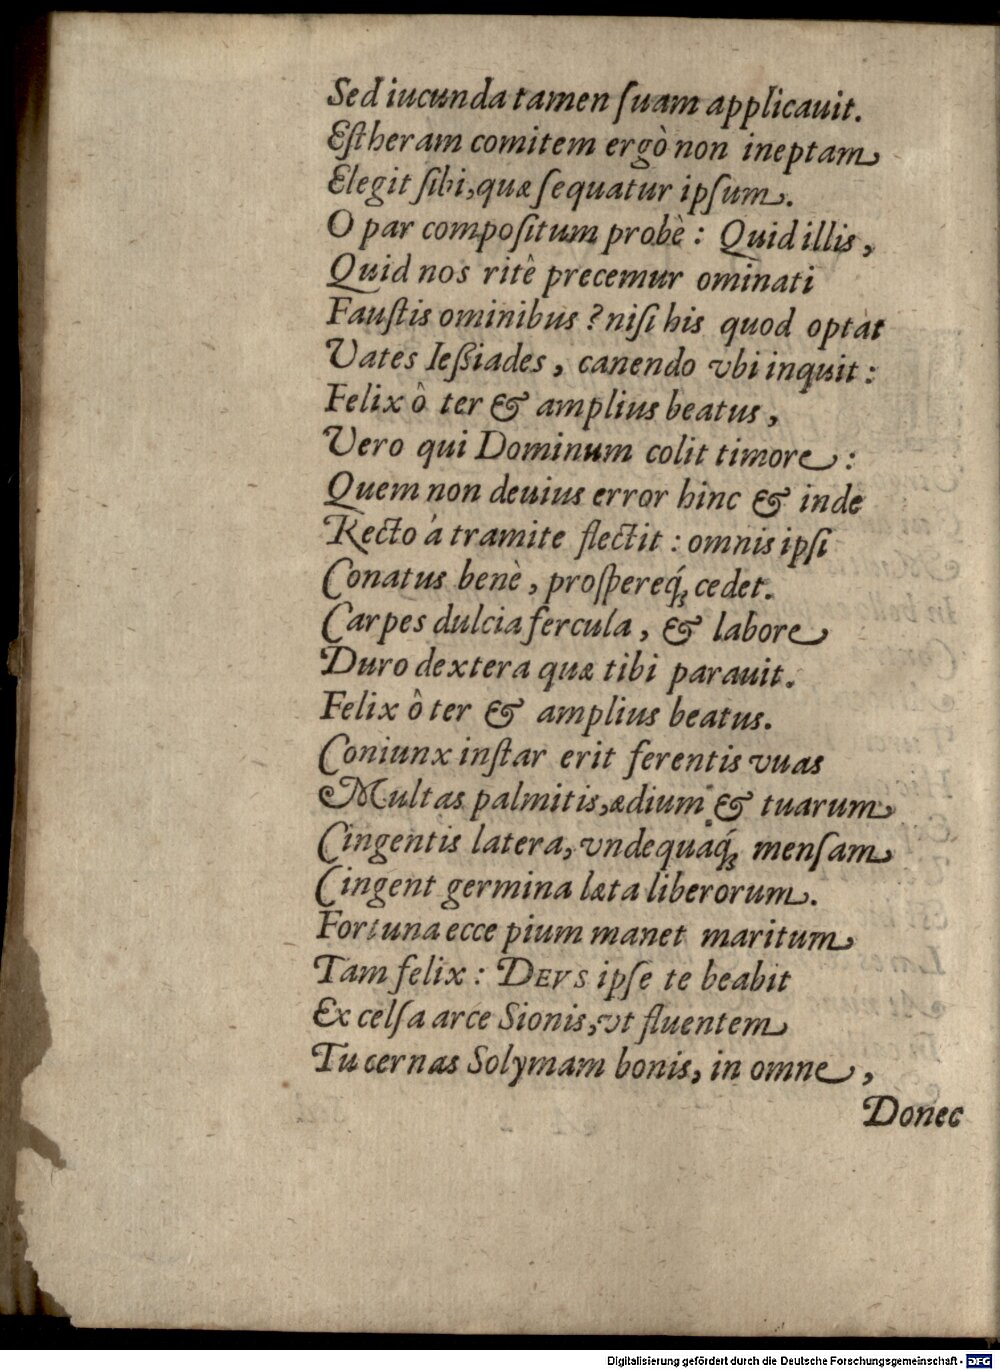 Sed iucunda tamen ſuam applicauit.
Eſtheram comitem ergò non ineptam
Elegit ſibi, quæ ſequatur ipſum.
O par compoſitum probè : Quid illis,
Quid nos ritè precemur ominati
Fauſtis ominibus ? niſi his quod optat
Vates Ießiades, canendo vbi inquit :
Felix ô ter & amplius beatus,
Vero qui Dominum colit timore :
Quem non deuius error hinc & inde
Recto à tramite flectit : omnis ipſi
Conatus benè, proſpereq́ꝫ cedet.
Carpes dulcia fercula, & labore
Duro dextera quæ tibi parauit.
Felix ô ter & amplius beatus.
Coniunx inſtar erit ferentis vuas
Multas palmitis, ædium & tuarum
Cingentis latera, vndequáq́ꝫ menſam
Cingent germina læta liberorum.
Fortuna ecce pium manet maritum
Tam felix : DEVS ipſe te beabit
Ex celſa arce Sionis, vt fluentem
Tu cernas Solymam bonis, in omne,
Donec
Digitalisierung gefördert durch die Deutsche Forschungsgemeinschaft - DFG